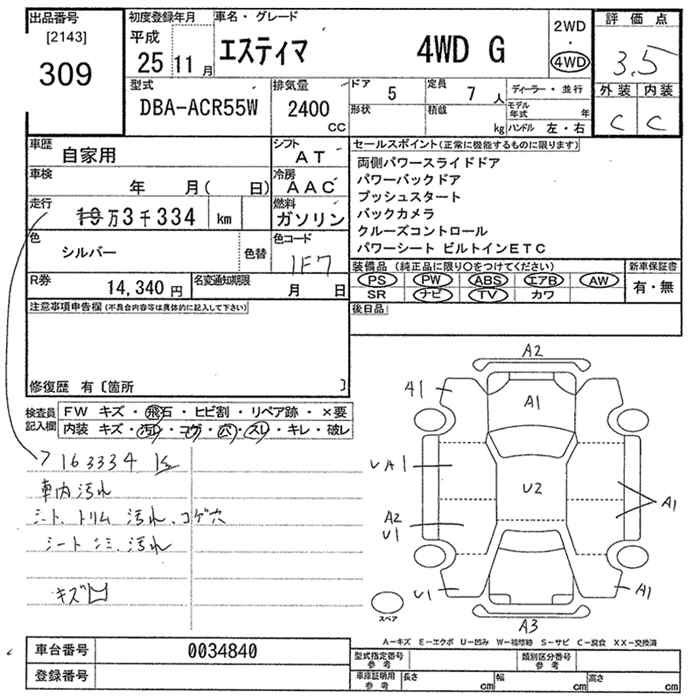 出品番号 初度登録年月 車名・グレード 2WD 評価点
[2143] 平成 エスティマ 4WD G ・ 3.5
309 25 11月 4WD 外装 内装
型式 排気量 ドア 5 定員 7人 ディーラー・並行 C C
DBA-ACR55W 2400 形状 積載 モデル年式 年
CC kg ハンドル 左・右
車歴 シフト セールスポイント(正常に機能するものに限ります)
自家用 AT 両側パワースライドドア
車検 冷房 パワーバックドア
年 月( 日) AAC プッシュスタート
走行 燃料 バックカメラ
万3千334 km ガソリン クルーズコントロール
色 色コード パワーシート ビルトインETC
シルバー 色替 1F7 装備品(純正品に限り○をつけてください) 新車保証書
R券 名変通知期限 PS PW ABS エアB AW 有・無
14,340円 月 日 SR ナビ TV カワ
注意事項申告欄(不具合内容等は具体的に記入して下さい) 後日品
修復歴 有〔箇所 〕
検査員 FW キズ・飛石・ヒビ割・リペア跡・×要
記入欄 内装 キズ・汚レ・コゲ・穴・スレ・キレ・破レ
163334 K
車内汚れ
シート、トリム 汚れ、コゲ穴
汚れ
キズ
A2
A1 A1
UA1
U2
A1
A2
U1
U1 A1
スペア
A3
A-キズ E-エクボ U-凹み W-補修跡 S-サビ C-腐食 XX-交換済
車台番号 0034840 型式指定番号 参考 類別区分番号 参考
登録番号 車庫証明用 参考 長さ cm 幅 cm 高さ cm